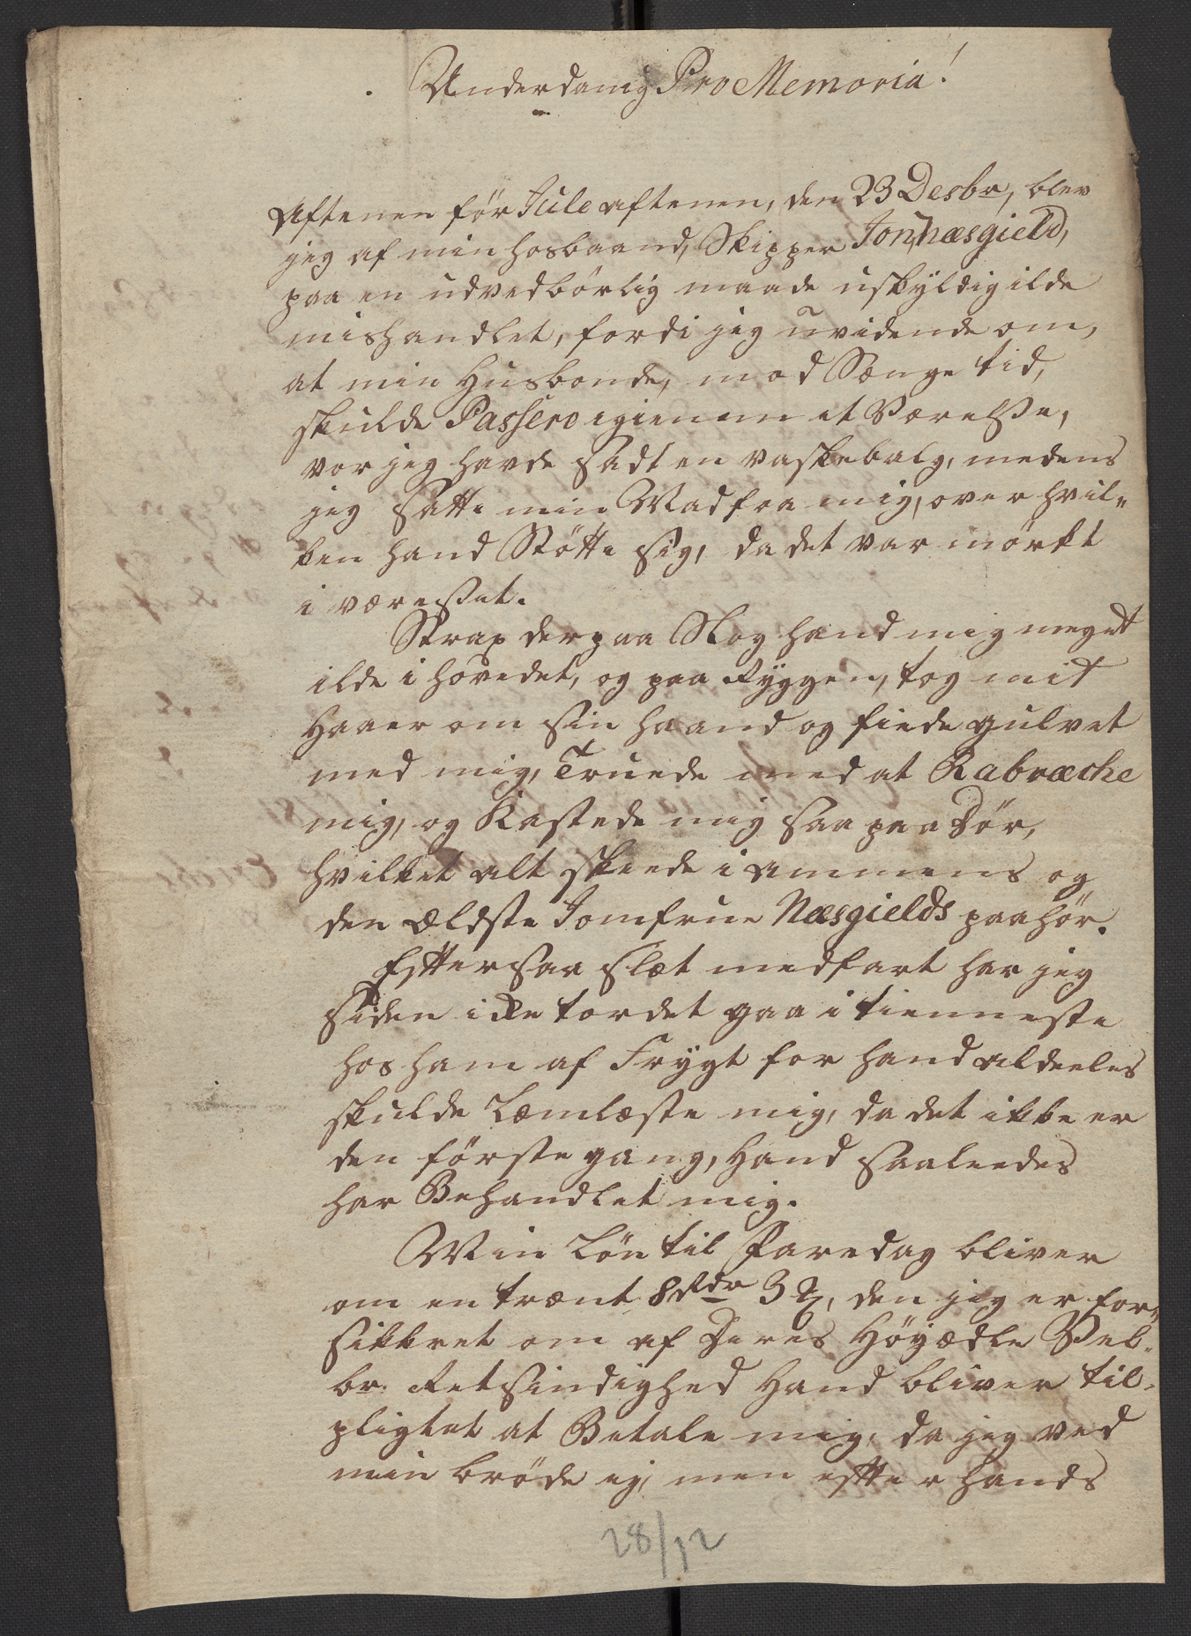 Underdanig Pro Memoria!
Aftenen før Jule aftenen, den 23 Desbr, blev
jeg af min hosbaand, Skipper Jon næsgield,
paa en udvedbørlig maade uskÿldig ilde
mishandlet, fordi jeg uvidende om,
at min Husbonde, mod Sænge tid,
skulde Passere igienem et Værelse,
vor jeg havde sadt en vaskebalg, medens
jeg satte min Mad fra mig, over hvil„
ken hand Støtte sig, da det var mørkt
i værelset.
Strax derpaa Slog hand mig meget
ilde i hovedet, og paa Ryggen, tog mit
Haaer om sin haand og fiede gulvet
med mig, Truede med at Rabræcke
mig, og Kastede mig saa paa Dør,
hvilket alt skeede i Ammens og
den Ældste Jomfrue Næsgields paahør.
Efter saa slæt medfart har jeg
siden icke tordet gaa i tienneste
hos ham af Frÿgt for hand aldeeles
skulde Læmlæste mig, da det ikke er
den første gang, Hand saaleedes
har Behandlet mig.
Min Løn til Faredag bliver
om en trænt 8 Rdr 3 ß, den jeg er for„
sikkret om af Deres Høÿædle Vel„
br. Retsindighed Hand bliver til„
pligtet at Betale mig, da jeg ved
min brøde ej, men efter hands
28/12